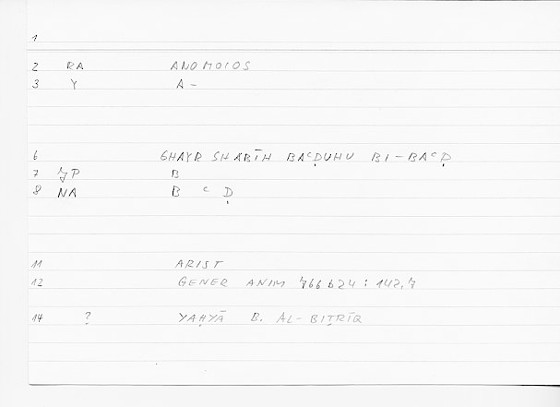 1
2 RA ANOMOIOS
3 Y A-
6 GHAYR SHABĪH BAʿḌUHU BI-BAʿḌ
7 JP B
8 NA B ʿ Ḍ
11 ARIST
12 GENER ANIM 766b24 : 142,7
17 ? YAḤYĀ B. AL-BIṬRĪQ